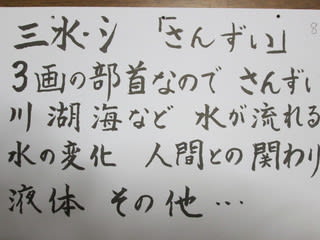 三水・氵 「さんずい」
3画の部首なので さんずい
川 湖 海 など 水が流れる
水の変化 人間との関わり
液体 その他 …
8